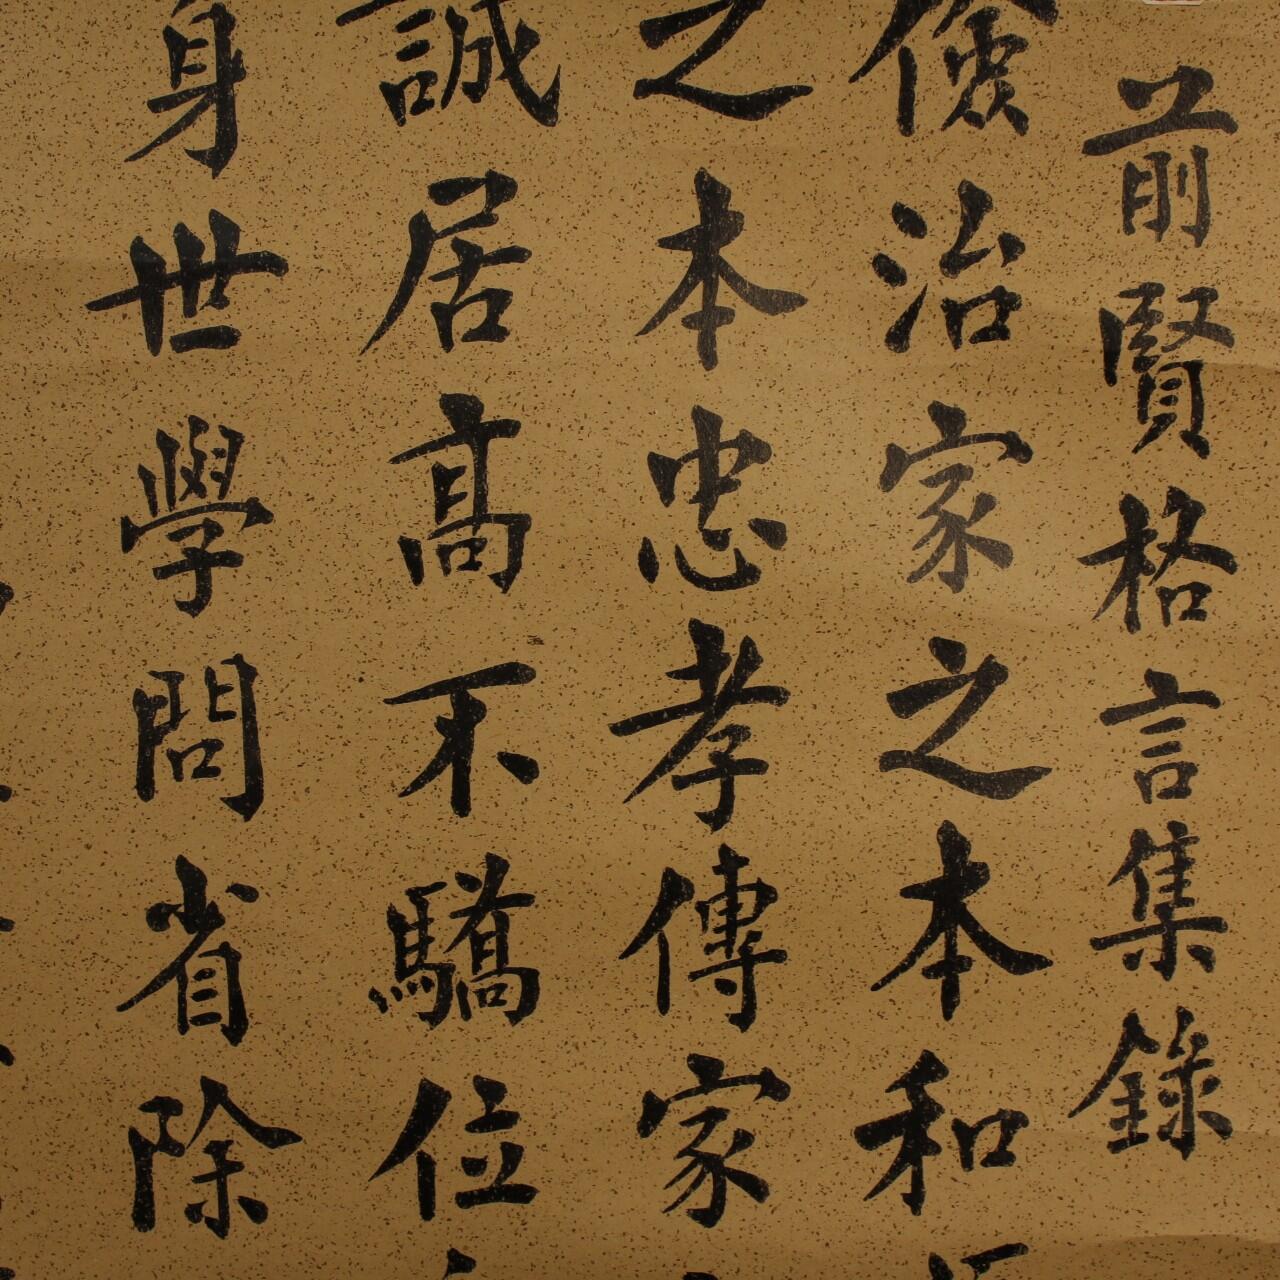 前賢格言集錄
儉治家之本和
之本忠孝傳家
誠居高不驕位
身世學問省除